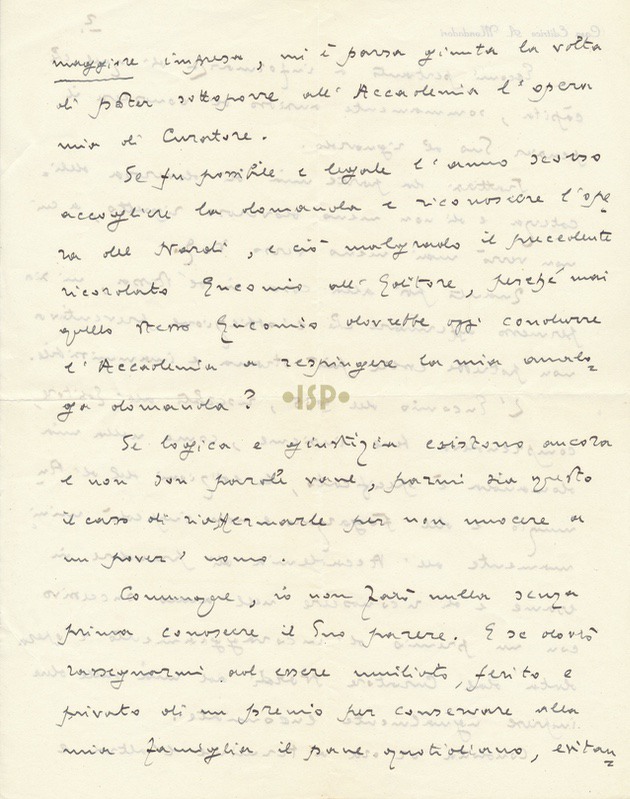 maggiore impresa, mi è parsa giunta la volta
di poter sottoporre all'Accademia l'opera
mia di Curatore.
Se fu possibile e legale l'anno scorso
accogliere la domanda e riconoscere l'ope
ra del Nardi, e ciò malgrado il precedente
ricordato Encomio all'Editore, perché mai
quello stesso Encomio dovrebbe oggi condurre
l'Accademia a respingere la mia analo-
ga domanda?
•ISP•
Se logica e giustizia esistono ancora
e non son parole vane, parmi sia questo
il caso di riaffermarle per non nuocere a
un pover'uomo.
Comunque, io non farò nulla senza
prima conoscere il Suo parere. E se dovrò
rassegnarmi ad essere umiliato, ferito e
privato di un premio per conservare alla
mia famiglia il pane quotidiano, evitan-